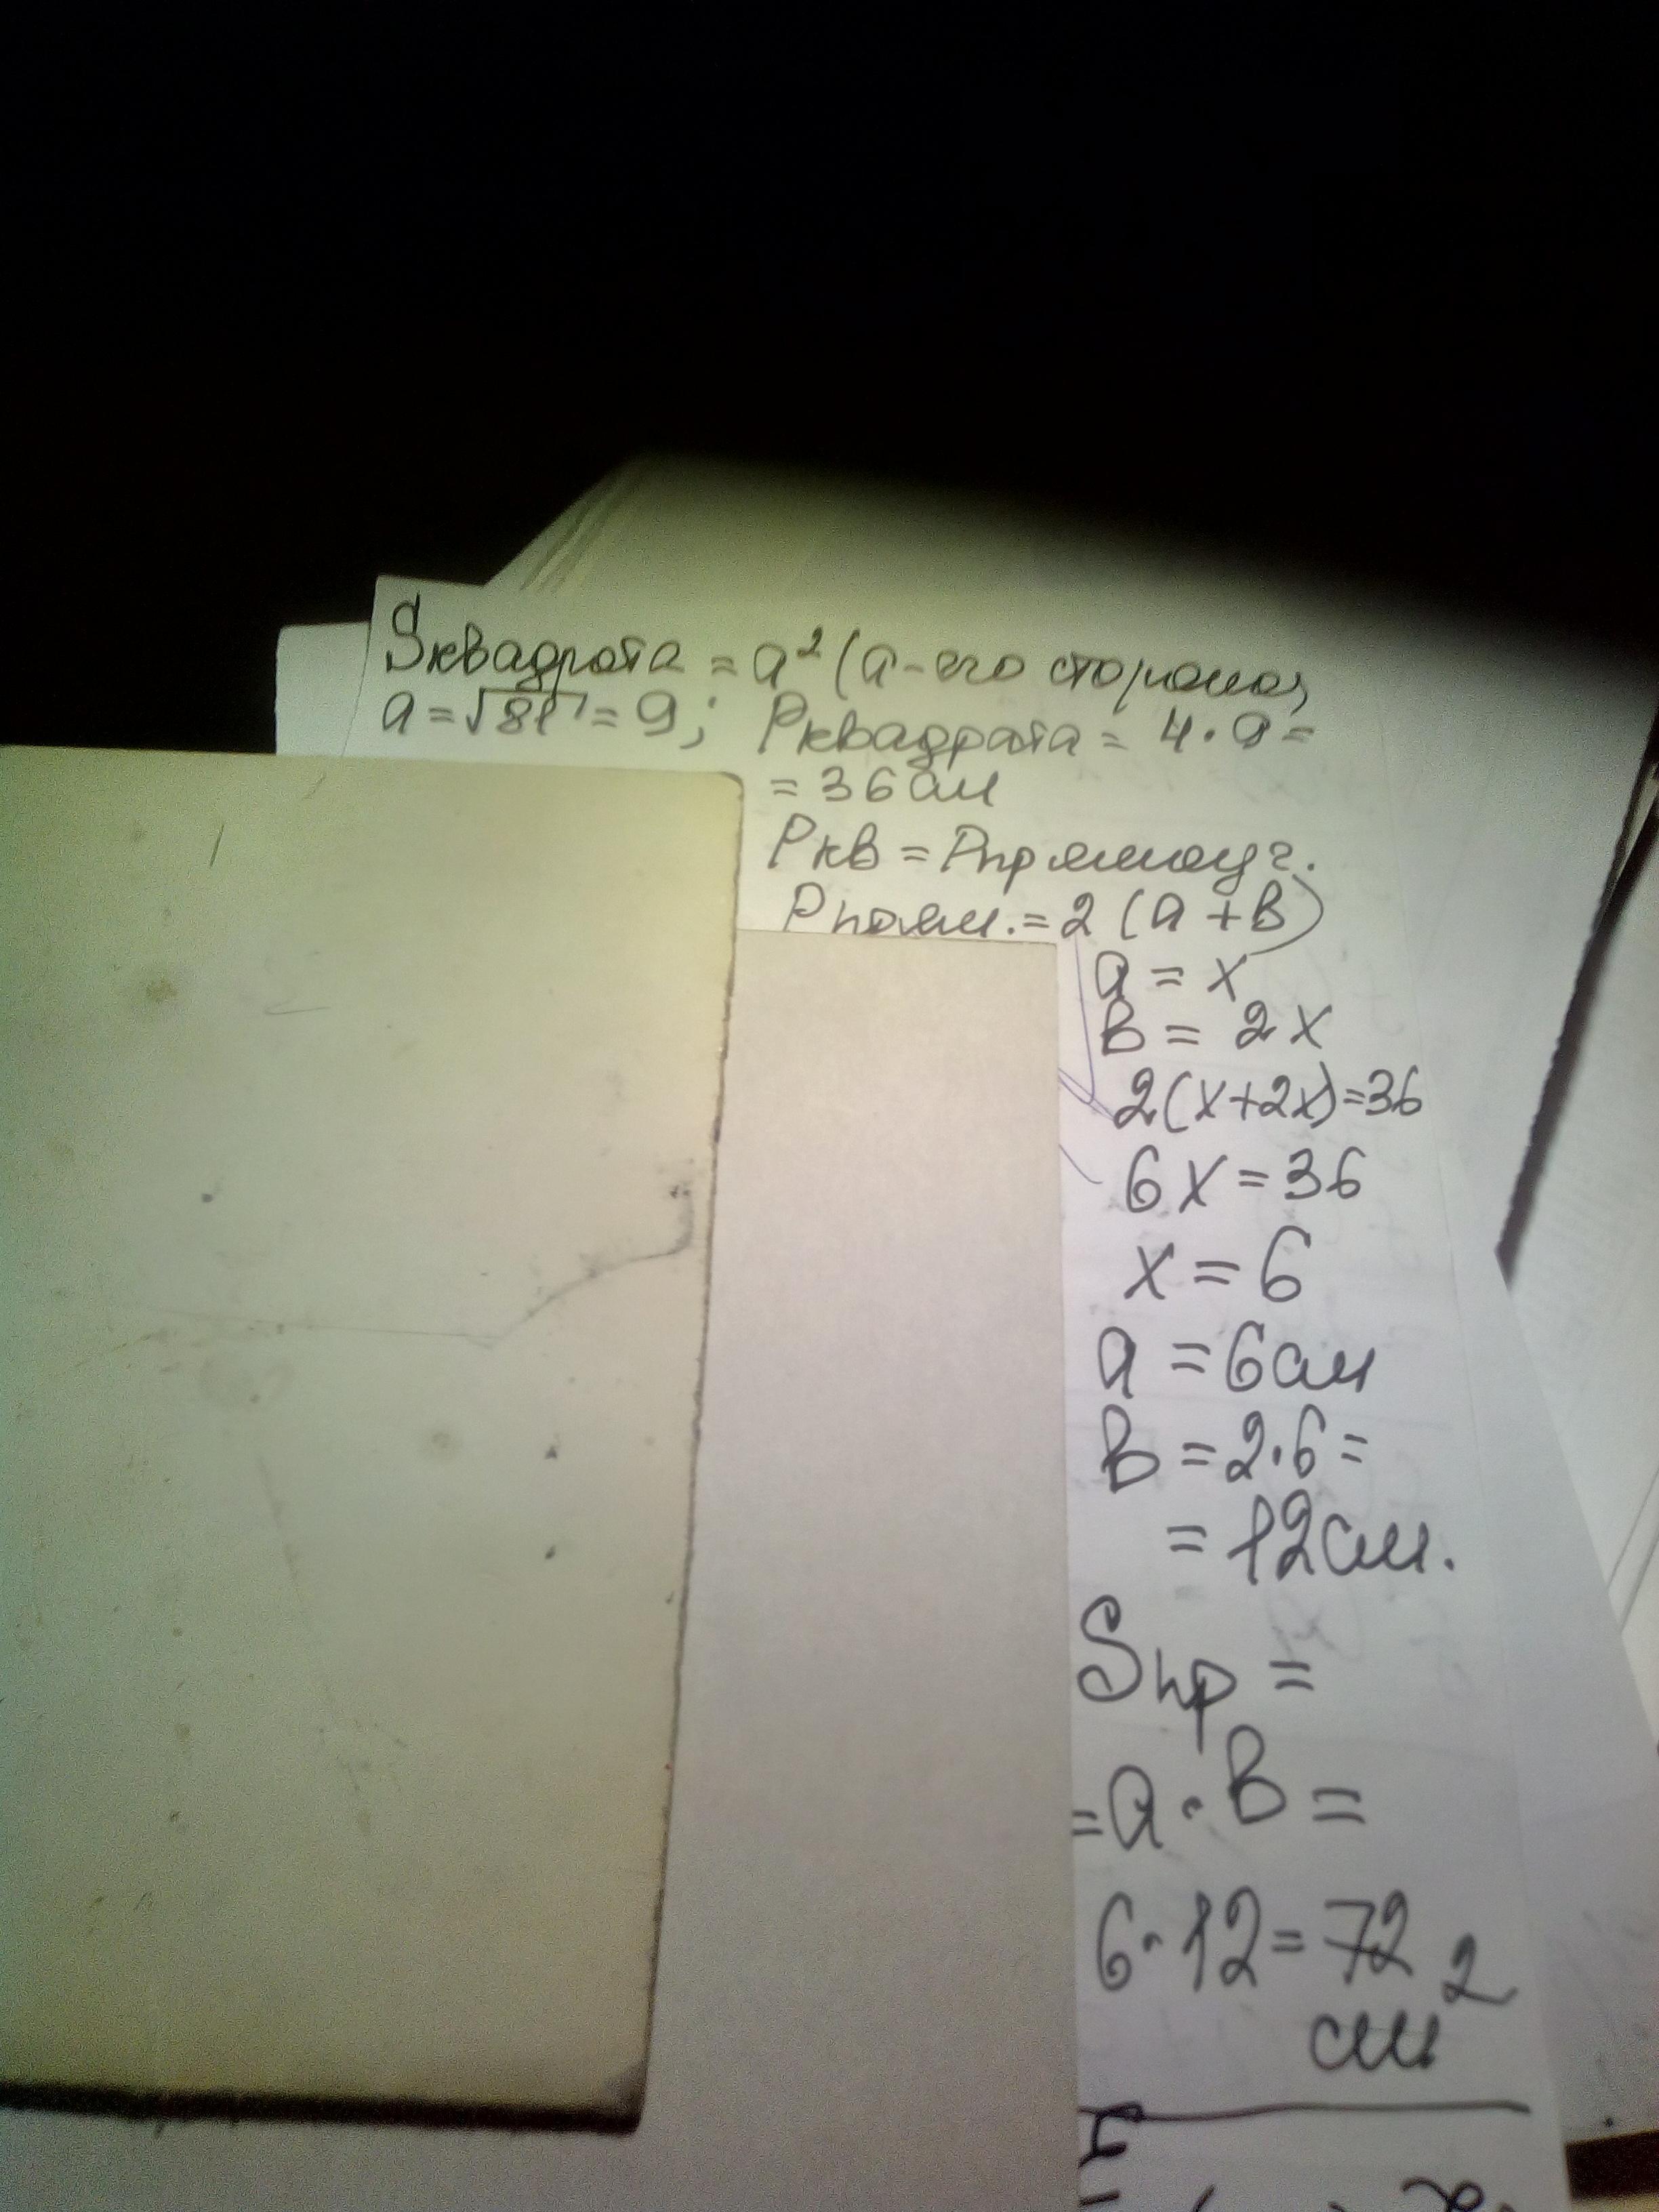 Sквадрата = a² (a - его сторона)
a = √81 = 9; Pквадрата = 4 · 9 =
= 36 см
Pкв = Pпрямоуг.
Pпрям. = 2 (a + в)
a = x
в = 2x
2(x+2x)=36
6x = 36
x = 6
a = 6 см
в = 2·6 =
= 12 см.
Sпр =
= a · в =
6 · 12 = 72
см²